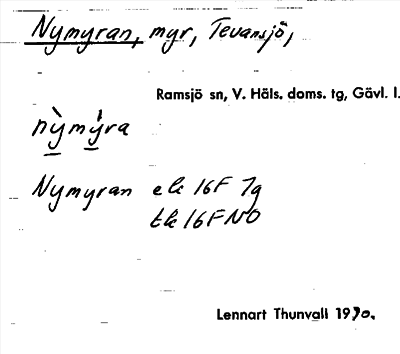 Nymyran, myr, Tevansjö,
Ramsjö sn, V. Häls. doms. tg, Gävl. l.
nỳmýra
Nymyran ek 16F 7g
tk 16F NO
Lennart Thunvall 1970.